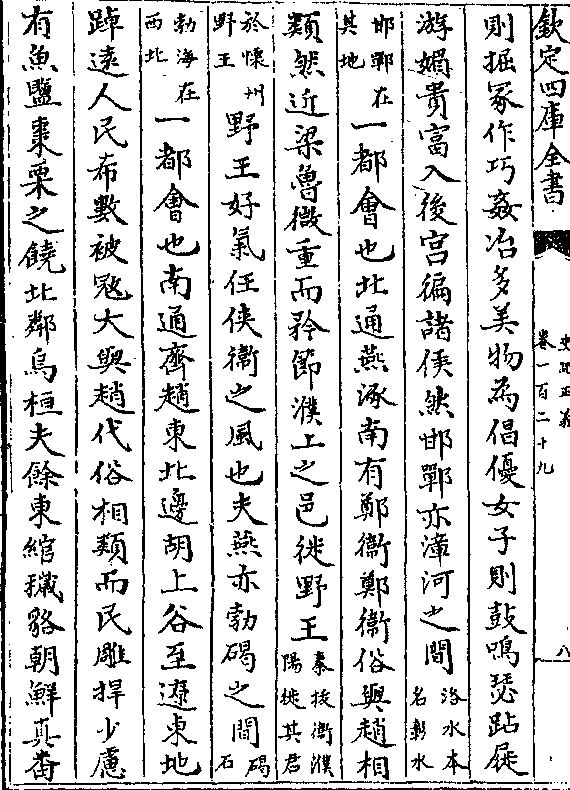 欽定四庫全書
史記正義
卷一百二十九
八
則掘冢作巧姦冶多美物為倡優女子則鼓鳴瑟跕屣
游媚貴富入後宫徧諸侯然邯鄲亦漳河之間洺水本名漳水
邯鄲在其地一都會也北通燕涿南有鄭衛鄭衛俗與趙相
類然近梁魯微重而矜節濮上之邑徙野王秦拔衛濮陽徙其君
於懷州野王野王好氣任俠衛之風也夫燕亦勃碣之間碣石
勃海在西北一都會也南通齊趙東北邊胡上谷至遼東地
踔遠人民希數被寇大與趙代俗相類而民雕捍少慮
有魚鹽棗栗之饒北鄰烏桓夫餘東綰穢貉朝鮮真番